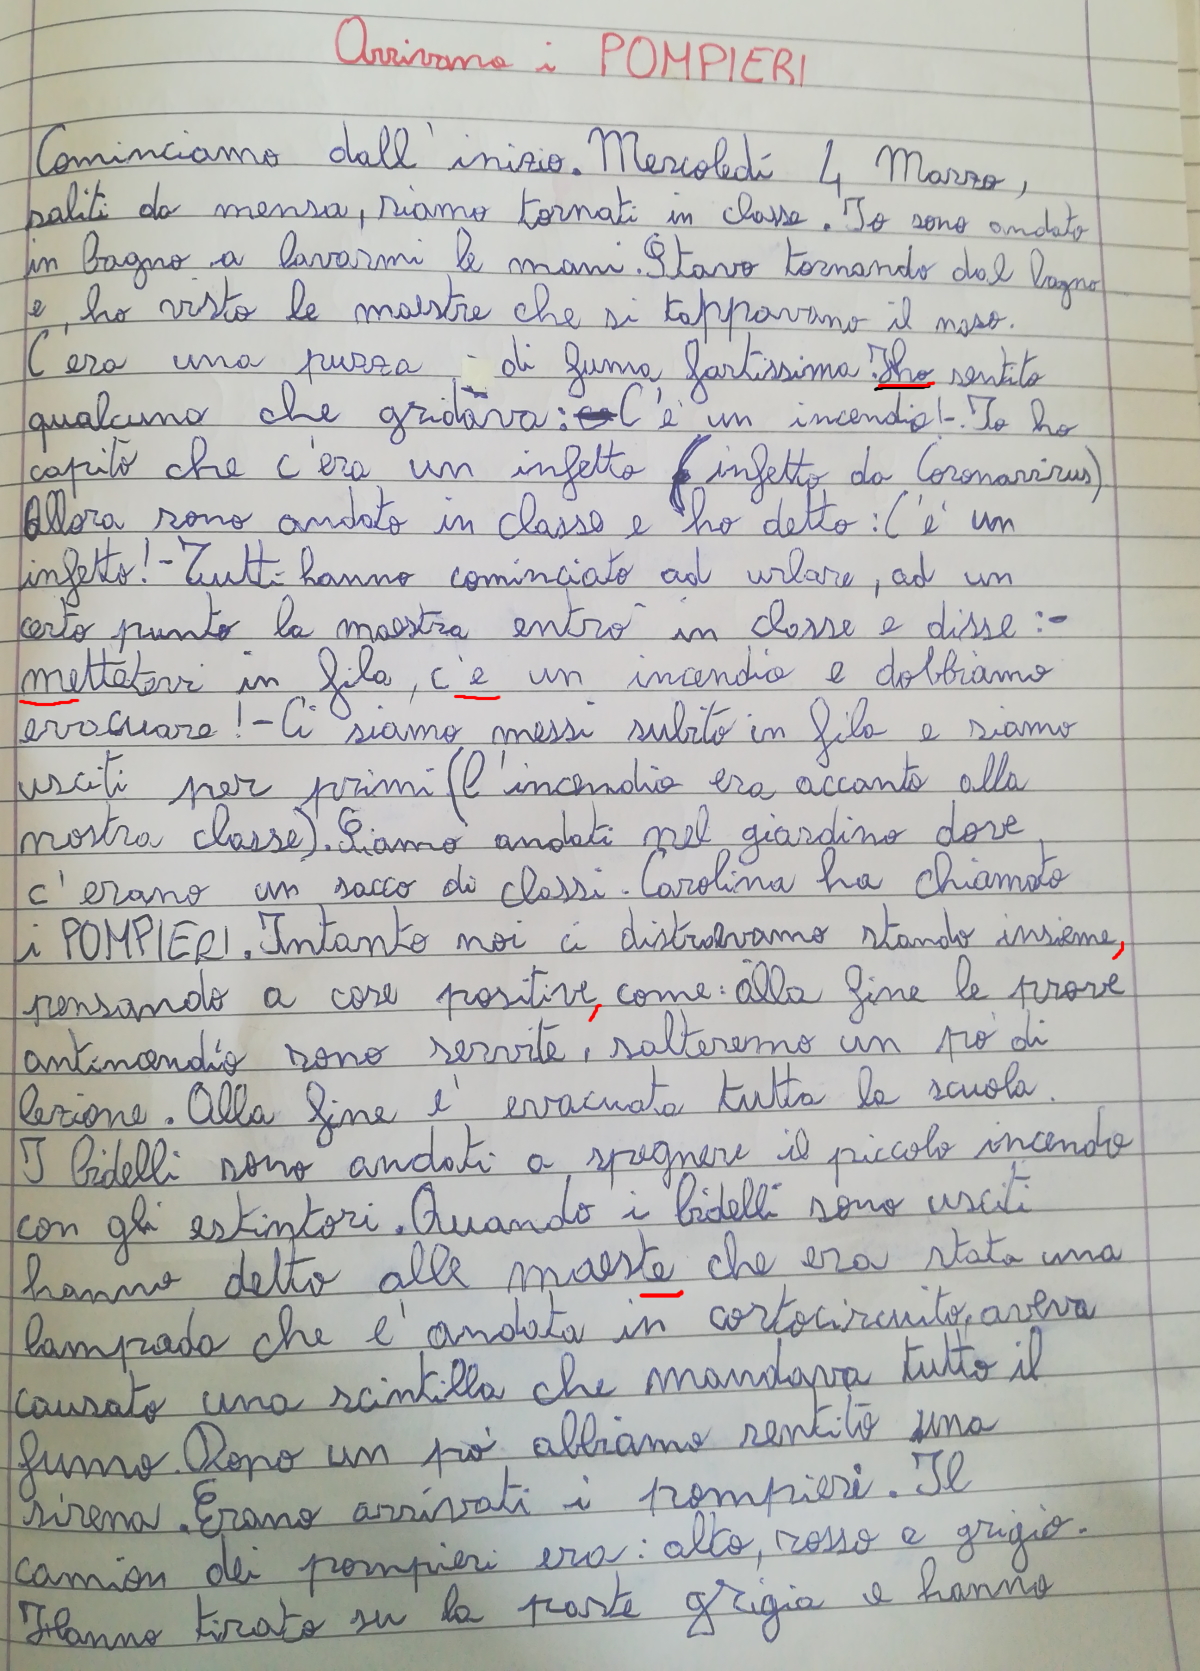 Arrivano i POMPIERI
Cominciamo dall'inizio. Mercoledí 4 Marzo,
saliti da mensa, siamo tornati in classe. Io sono andato
in bagno a lavarmi le mani. Stavo tornando dal bagno
e, ho visto le maestre che si tappavano il naso.
C'era una puzza di fumo fortissima. Ho sentito
qualcuno che gridava: C'è un incendio!-. Io ho
capito che c'era un infetto (infetto da Coronavirus)
Allora sono andato in classe e ho detto: C'è un
infetto!- Tutti hanno cominciato ad urlare, ad un
certo punto la maestra entrò in classe e disse:-
mettetevi in fila, c'è un incendio e dobbiamo
evvacuare!- Ci siamo messi subito in fila e siamo
usciti per primi (l'incendio era accanto alla
nostra classe). Siamo andati nel giardino dove
c'erano un sacco di classi. Carolina ha chiamato
i POMPIERI. Intanto noi ci distraevamo stando insieme,
pensando a cose positive, come: alla fine le prove
antincendio sono servite, salteremo un pò di
lezione. Alla fine è evvacuata tutta la scuola.
I bidelli sono andati a spegnere il piccolo incendio
con gli estintori. Quando i bidelli sono usciti
hanno detto alle maeste che era stata una
lampada che è andata in cortocircuito, aveva
causato una scintilla che mandava tutto il
fumo. Dopo un pò abbiamo sentito una
sirena. Erano arrivati i pompieri. Il
camion dei pompieri era: alto, rosso e grigio.
Hanno tirato su la parte grigia e hanno